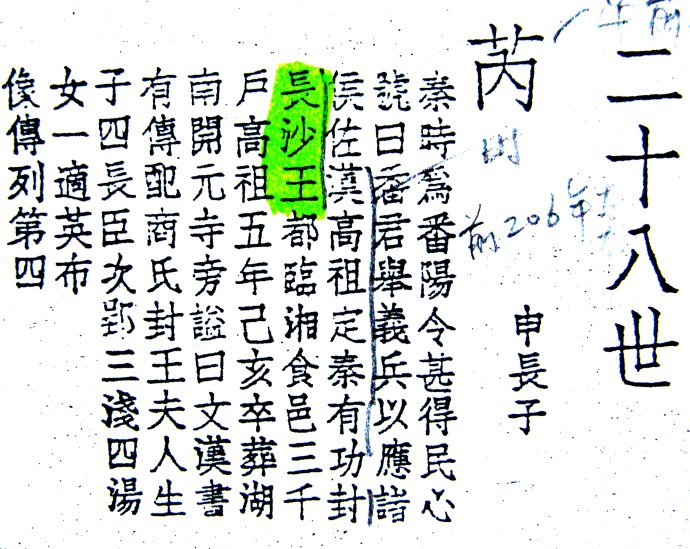 二十八世
芮
申長子
前206年
秦時為番陽令甚得民心
號曰番君舉義兵以應諸
侯佐漢高祖定秦有功封
長沙王都臨湘食邑三千
戶高祖五年己亥卒葬湖
南開元寺旁謚曰文漢書
有傳配商氏封王夫人生
子四長臣次郢三淺四湯
女一適英布
像傳列第四